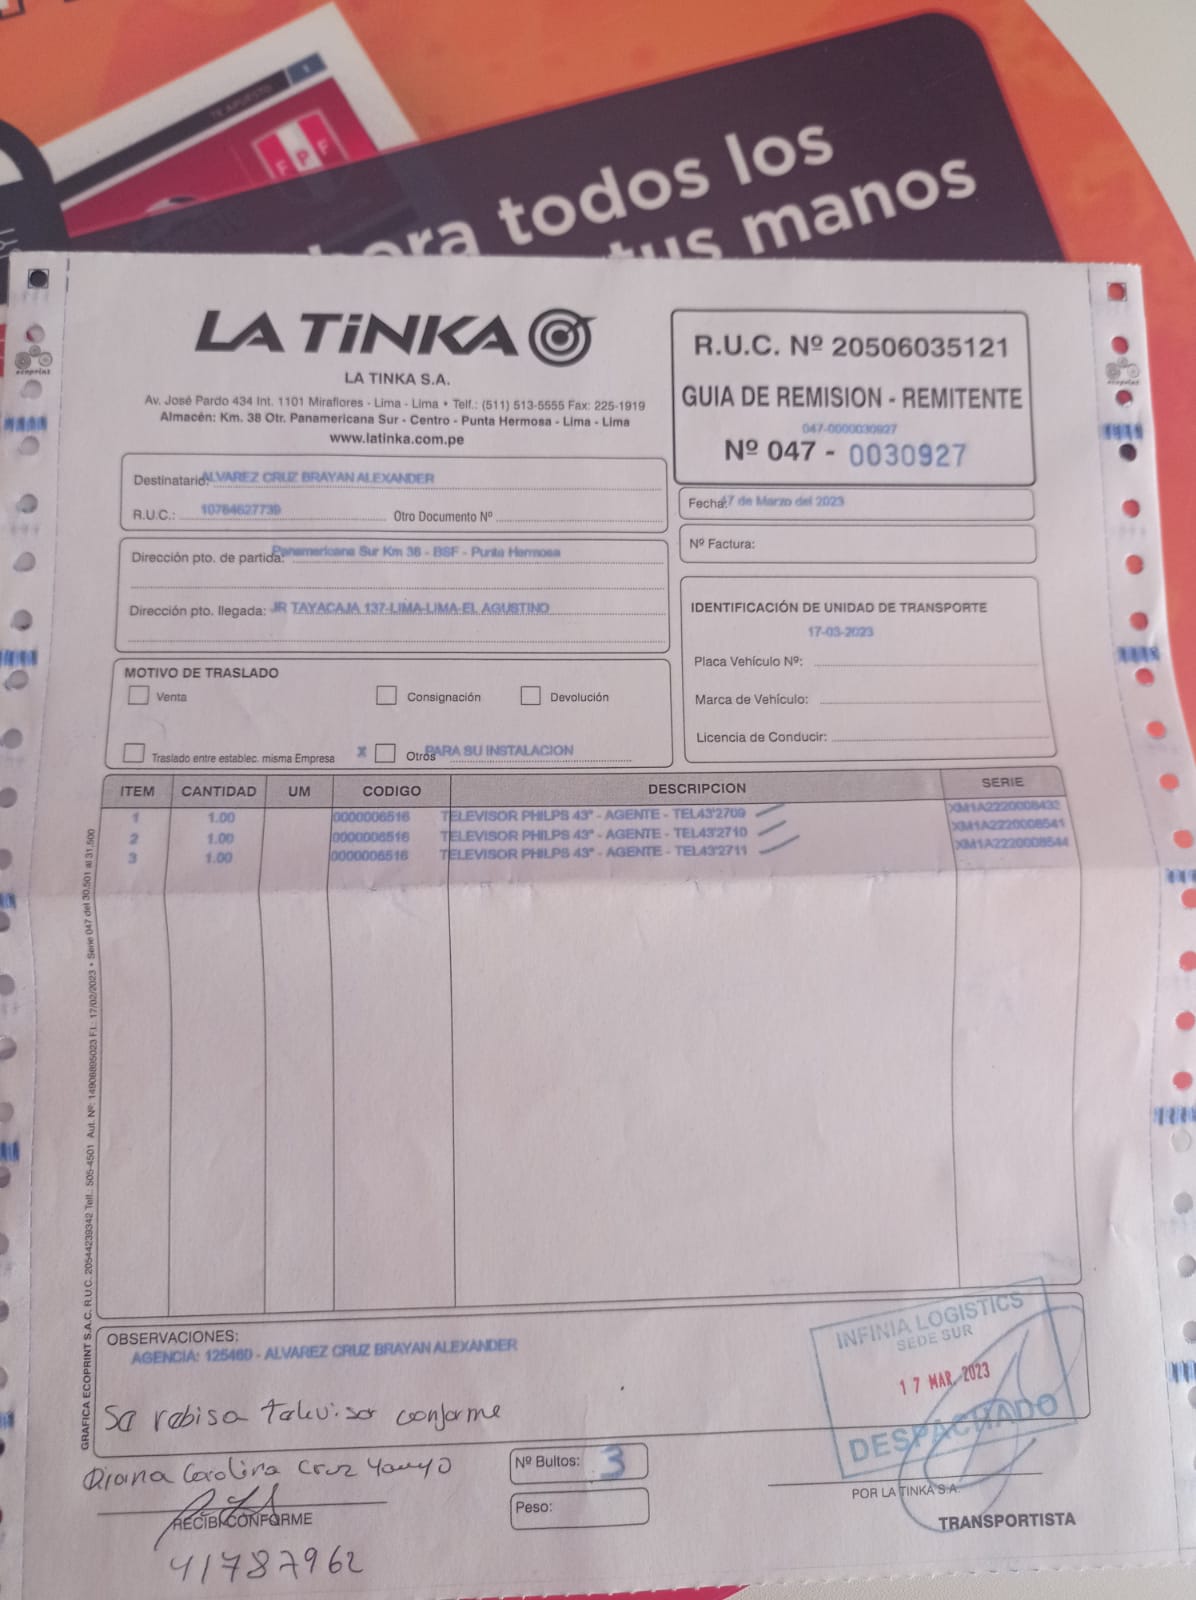 TE APUESTO
1
FPF
ora todos los
tus manos
LA TiNKA
LA TINKA S.A.
Av. José Pardo 434 Int. 1101 Miraflores - Lima - Lima • Telf.: (511) 513-5555 Fax: 225-1919
Almacén: Km. 38 Otr. Panamericana Sur - Centro - Punta Hermosa - Lima - Lima
www.latinka.com.pe
R.U.C. Nº 20506035121
GUIA DE REMISION - REMITENTE
047-0000030927
Nº 047 - 0030927
ecoprint
ecoprint
Destinatario: ALVAREZ CRUZ BRAYAN ALEXANDER
R.U.C.: 10784627739 Otro Documento Nº
Fecha: 17 de Marzo del 2023
Nº Factura:
Dirección pto. de partida: Panamericana Sur Km 38 - BSF - Punta Hermosa
Dirección pto. llegada: JR TAYACAJA 137-LIMA-LIMA-EL AGUSTINO
IDENTIFICACIÓN DE UNIDAD DE TRANSPORTE
17-03-2023
Placa Vehículo Nº:
Marca de Vehículo:
Licencia de Conducir:
MOTIVO DE TRASLADO
Venta Consignación Devolución
Traslado entre establec. misma Empresa X Otros PARA SU INSTALACION
ITEM CANTIDAD UM CODIGO DESCRIPCION SERIE
1 1.00 0000006516 TELEVISOR PHILPS 43" - AGENTE - TEL43'2709 XM1A2220008432
2 1.00 0000006516 TELEVISOR PHILPS 43" - AGENTE - TEL43'2710 XM1A2220008541
3 1.00 0000006516 TELEVISOR PHILPS 43" - AGENTE - TEL43'2711 XM1A2220008544
GRAFICA ECOPRINT S.A.C. R.U.C. 20544239342 Telf.: 505-4501 Aut. Nº: 14908895023 F.I.: 17/02/2023 • Serie 047 del 30,501 al 31,500
OBSERVACIONES:
AGENCIA: 125460 - ALVAREZ CRUZ BRAYAN ALEXANDER
Se rebisa televisor conforme
INFINIA LOGISTICS
SEDE SUR
17 MAR. 2023
DESPACHADO
Diana Carolina Cruz
RECIBI CONFORME
41787962
Nº Bultos: 3
Peso:
POR LA TINKA S.A.
TRANSPORTISTA